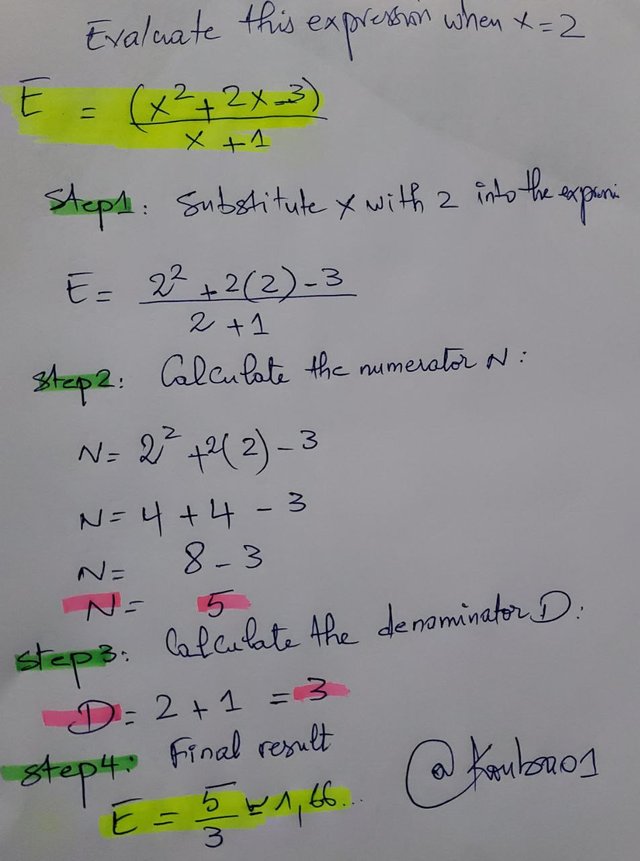 Evaluate this expression when x=2
E = (x²+2x-3)
x+1
Step1: Substitute x with 2 into the
E= 2²+2(2)-3
2+1
step2: Calculate the numerator N:
N= 2²+2(2)-3
N= 4+4-3
N= 8-3
N= 5
step3: Calculate the denominator D:
D= 2+1 = 3
step4: Final result
E = 5/3 ≃ 1,66...